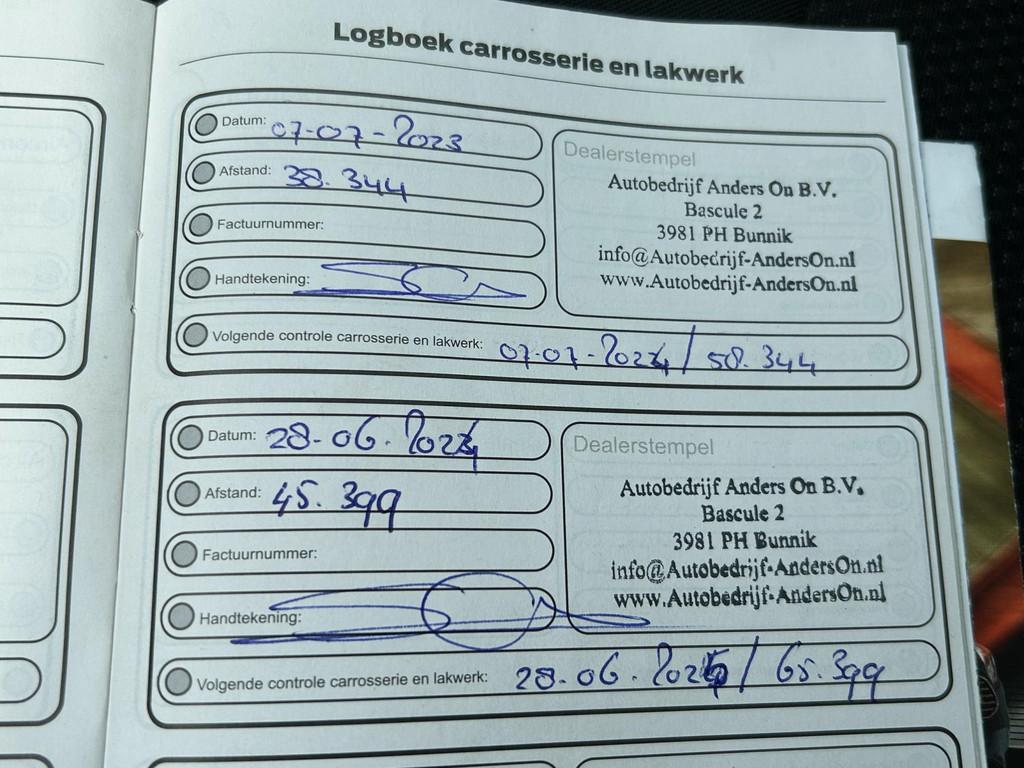 Logboek carrosserie en lakwerk
Datum: 07-07-2023
Afstand: 38.344
Factuurnummer:
Handtekening:
Dealerstempel
Autobedrijf Anders On B.V.
Bascule 2
3981 PH Bunnik
info@Autobedrijf-AndersOn.nl
www.Autobedrijf-AndersOn.nl
Volgende controle carrosserie en lakwerk: 07-07-2024/58.344
Datum: 28-06.2024
Afstand: 45.399
Factuurnummer:
Handtekening:
Dealerstempel
Autobedrijf Anders On B.V.
Bascule 2
3981 PH Bunnik
info@Autobedrijf-AndersOn.nl
www.Autobedrijf-AndersOn.nl
Volgende controle carrosserie en lakwerk: 28-06.2025/65.399